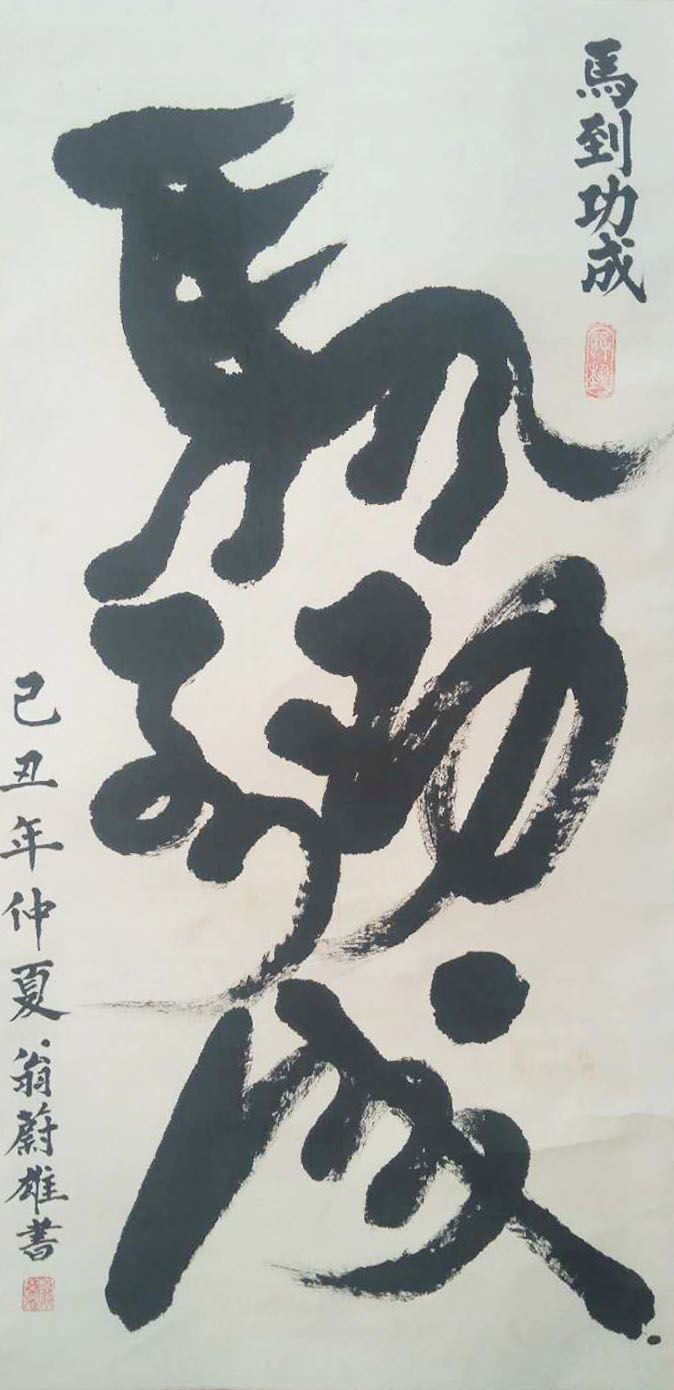 馬到功成
馬到功成
己丑年仲夏翁蔚雄書